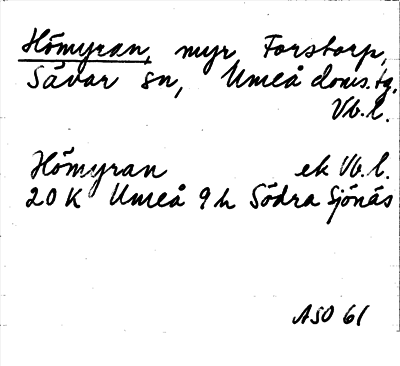 Hömyran, myr Forstorp,
Sävar sn, Umeå doms.tg.
Vb.l.
Hömyran ek Vb.l.
20 K Umeå 9 h Södra Sjönäs
ASO 61